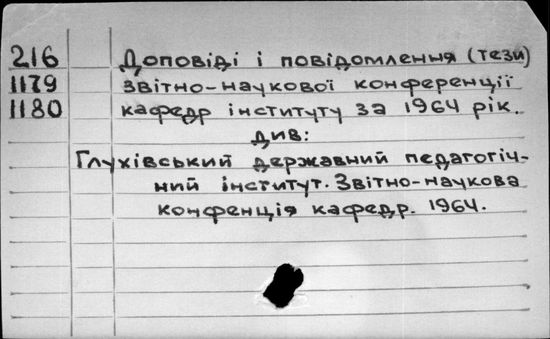 216 Доповіді і повідомлення (тези)
1179 звітно-наукової конференції
1180 кафедр інституту за 1964 рік.
див:
Глухівський державний педагогіч-
ний інститут. Звітно-наукова
конфенція кафедр. 1964.